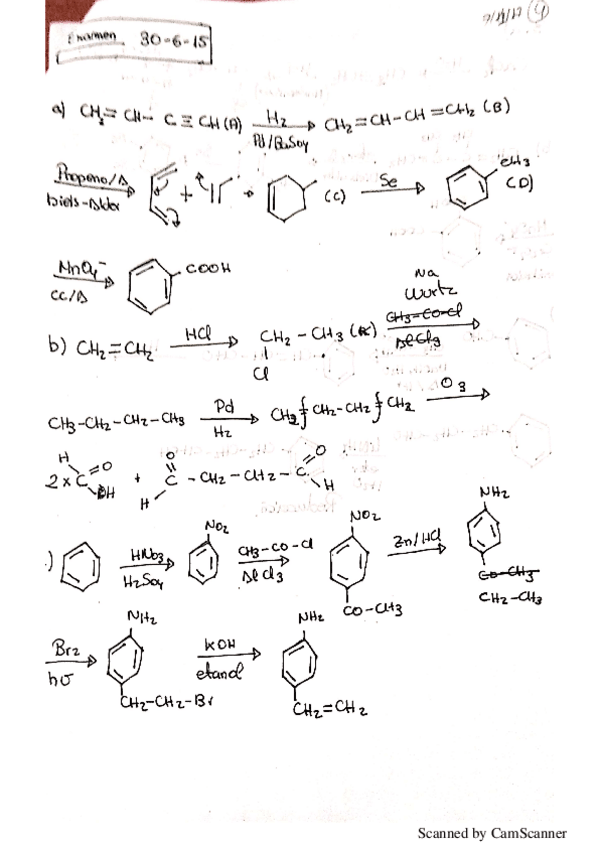 Examen 30-6-15
a) CH₂=CH-C≡CH (A) H₂ Pd/BaSO₄ CH₂=CH-CH=CH₂ (B)
Propeno/Δ Diels-Alder + (C) Se CH₃ (D)
MnO₄⁻ cc/Δ COOH
b) CH₂=CH₂ HCl CH₂-CH₃ (A) Cl Na Wurtz CH₃-CO-Cl AlCl₃
CH₃-CH₂-CH₂-CH₃ Pd H₂ CH₂ CH₂-CH₂ CH₂ O₃
2 x H C O OH + O C H -CH₂-CH₂- C O H
.) HNO₃ H₂SO₄ NO₂ CH₃-CO-Cl AlCl₃ NO₂ CO-CH₃ Zn/HCl NH₂ CO-CH₃ CH₂-CH₃
Br₂ hυ NH₂ CH₂-CH₂-Br KOH etanol NH₂ CH₂=CH₂
Scanned by CamScanner